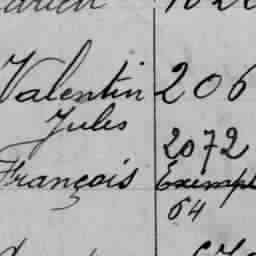 Valentin 206
Jules
2072
François Exempt
64